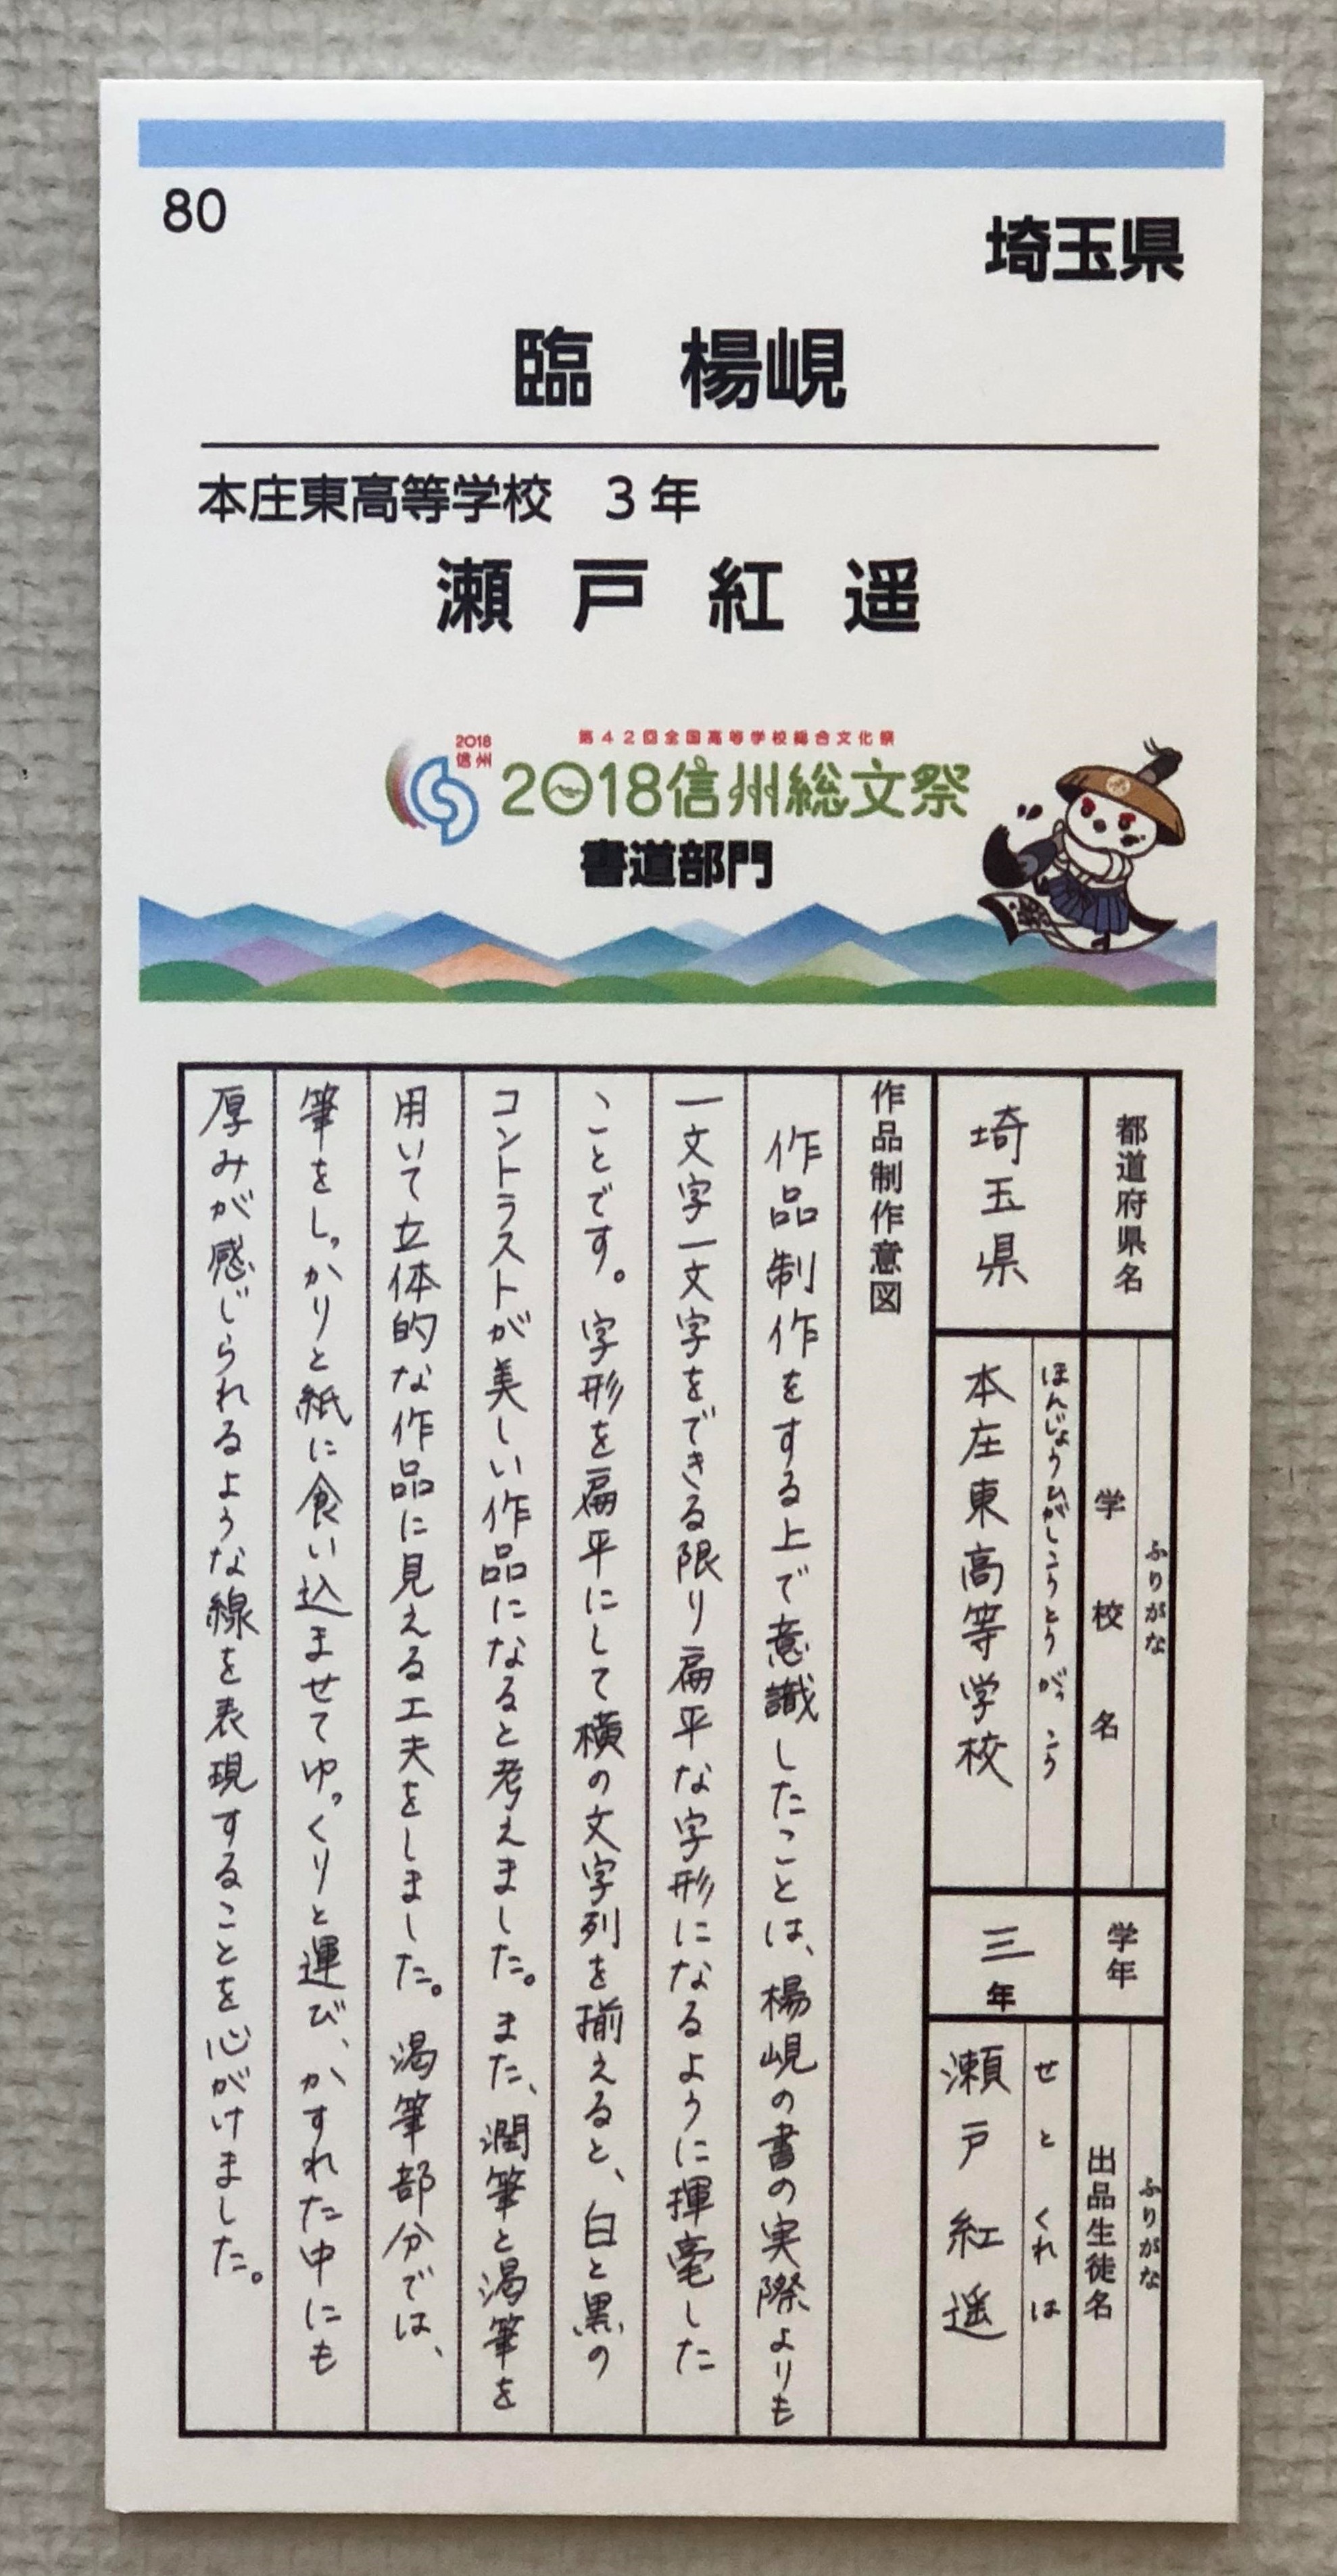 80
埼玉県
臨 楊峴
本庄東高等学校 3年
瀬戸紅遥
2018
信州
第42回全国高等学校総合文化祭
2018信州総文祭
書道部門
都道府県名
埼玉県
ふりがな
学校名
ほんじょうひがしこうとうがっこう
本庄東高等学校
学年
三年
ふりがな
出品生徒名
せとくれは
瀬戸紅遥
作品制作意図
作品制作をする上で意識したことは、楊峴の書の実際よりも
一文字一文字をできる限り扁平な字形になるように揮毫した
ことです。字形を扁平にして横の文字列を揃えると、白と黒の
コントラストが美しい作品になると考えました。また、潤筆と渇筆を
用いて立体的な作品に見える工夫をしました。渇筆部分では、
筆をしっかりと紙に食い込ませてゆっくりと運び、かすれた中にも
厚みが感じられるような線を表現することを心がけました。